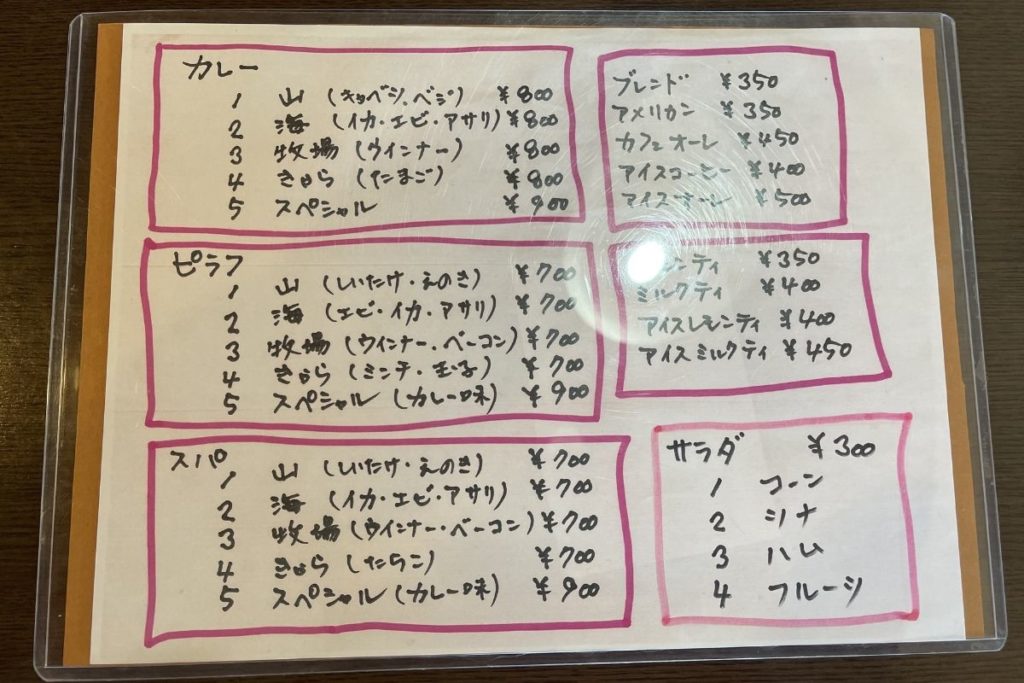 カレー
1 山 (キャベジ、ベジ) ¥800
2 海 (イカ・エビ・アサリ) ¥800
3 牧場 (ウインナー) ¥800
4 きゃら (たまご) ¥800
5 スペシャル ¥900
ピラフ
1 山 (しいたけ・えのき) ¥700
2 海 (エビ・イカ・アサリ) ¥700
3 牧場 (ウインナー・ベーコン) ¥700
4 きゃら (ミンチ・玉子) ¥700
5 スペシャル (カレー味) ¥900
スパ
1 山 (しいたけ・えのき) ¥700
2 海 (イカ・エビ・アサリ) ¥700
3 牧場 (ウインナー・ベーコン) ¥700
4 きゃら (たらこ) ¥700
5 スペシャル (カレー味) ¥900
ブレンド ¥350
アメリカン ¥350
カフェオーレ ¥450
アイスコーヒー ¥400
アイスオーレ ¥500
¥350
ミルクティ ¥400
アイスレモンティ ¥400
アイスミルクティ ¥450
サラダ ¥300
1 コーン
2 シナ
3 ハム
4 フルーツ